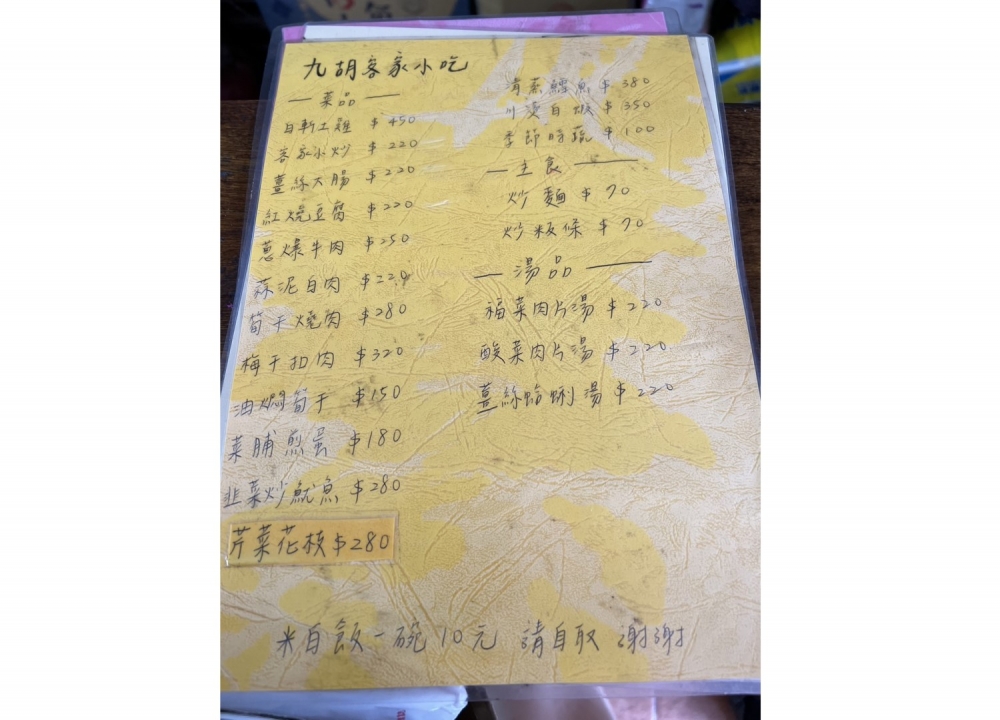 九胡客家小吃
— 菜品 —
白斬土雞 $450
客家小炒 $220
薑絲大腸 $220
紅燒豆腐 $220
蔥爆牛肉 $250
蒜泥白肉 $220
筍干燒肉 $280
梅干扣肉 $320
油燜筍干 $150
菜脯煎蛋 $180
韭菜炒魷魚 $280
芹菜花枝 $280
清蒸鱈魚 $380
川燙白蝦 $350
季節時蔬 $100
— 主食 —
炒麵 $70
炒粄條 $70
— 湯品 —
福菜肉片湯 $220
酸菜肉片湯 $220
薑絲蛤蜊湯 $220
米白飯一碗10元 請自取 謝謝